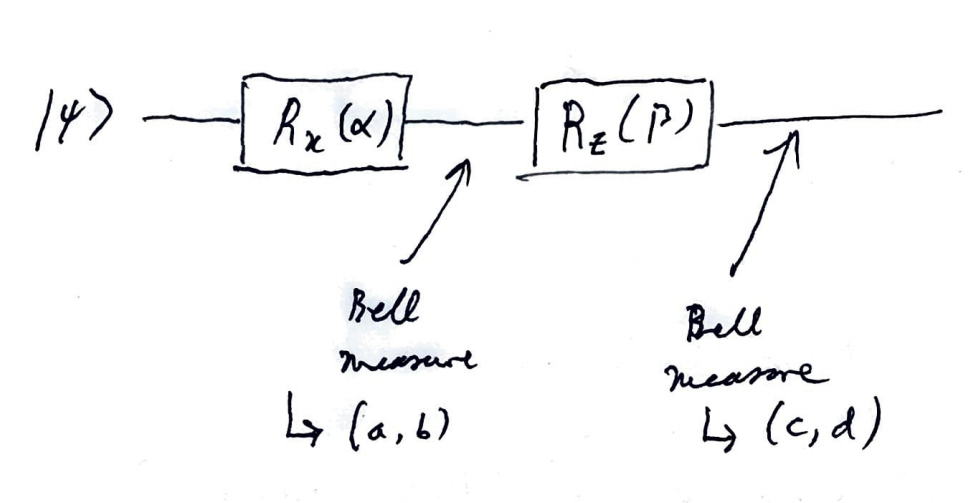 |ψ⟩ Rx(α) Rz(β)
Bell
measure
↳ (a, b)
Bell
measure
↳ (c, d)